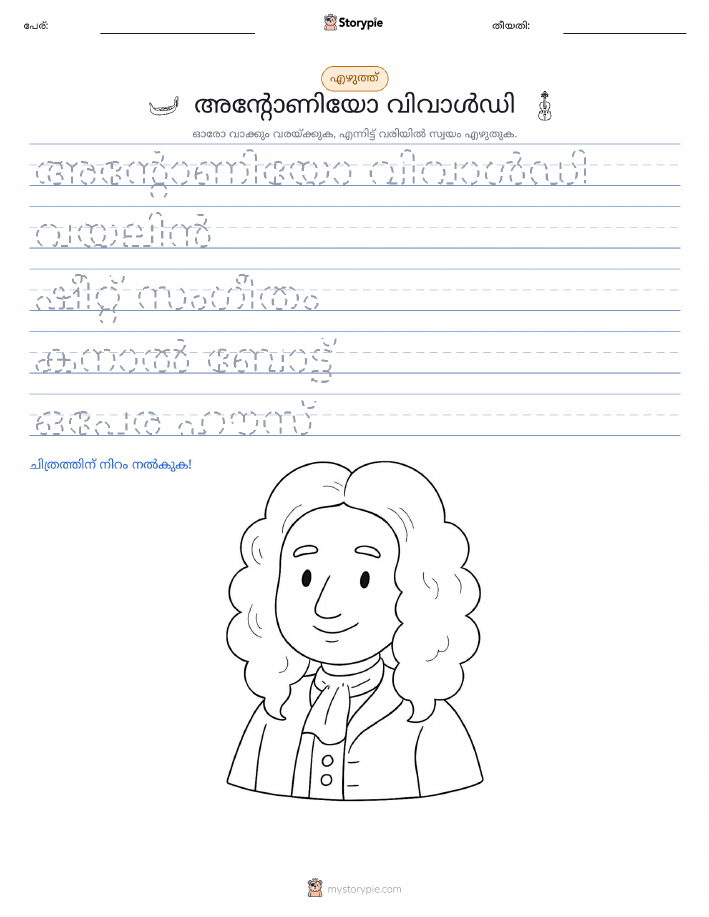 പേര്:
Storypie
തീയതി:
എഴുത്ത്
അന്റോണിയോ വിവാൾഡി
ഓരോ വാക്കും വരയ്ക്കുക, എന്നിട്ട് വരിയിൽ സ്വയം എഴുതുക.
അന്റോണിയോ വിവാൾഡി
വയലിൻ
ഷീറ്റ് സംഗീതം
കനാൽ ബോട്ട്
ഒപേര ഹൗസ്
ചിത്രത്തിന് നിറം നൽകുക!
mystorypie.com